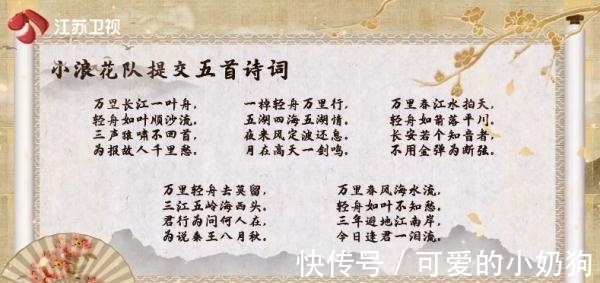 江苏卫视
小浪花队提交五首诗词
万里长江一叶舟，
轻舟如叶顺沙流。
三声猿啸不回首，
为报故人千里愁。
一棹轻舟万里行，
五湖四海五湖情。
夜来风定波还息，
月在高天一剑鸣。
万里春江水拍天，
轻舟如箭落平川。
长安若个知音者，
不用金弹为断弦。
万里轻舟去莫留，
三江五岭海西头。
君行为问何人在，
为说秦王八月秋。
万里春风海水流，
轻舟如叶不知愁。
三年避地江南岸，
今日逢君一泪流。
快传号 / 可爱的小奶狗